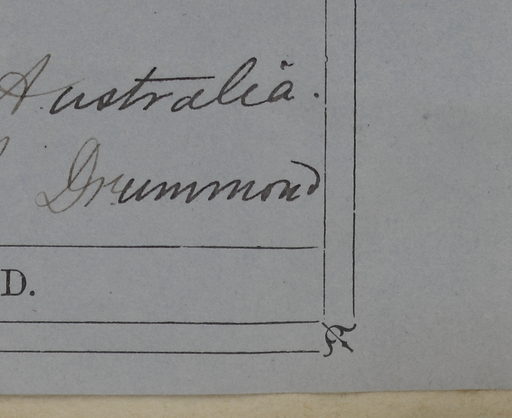 Australia.
Drummond
D.